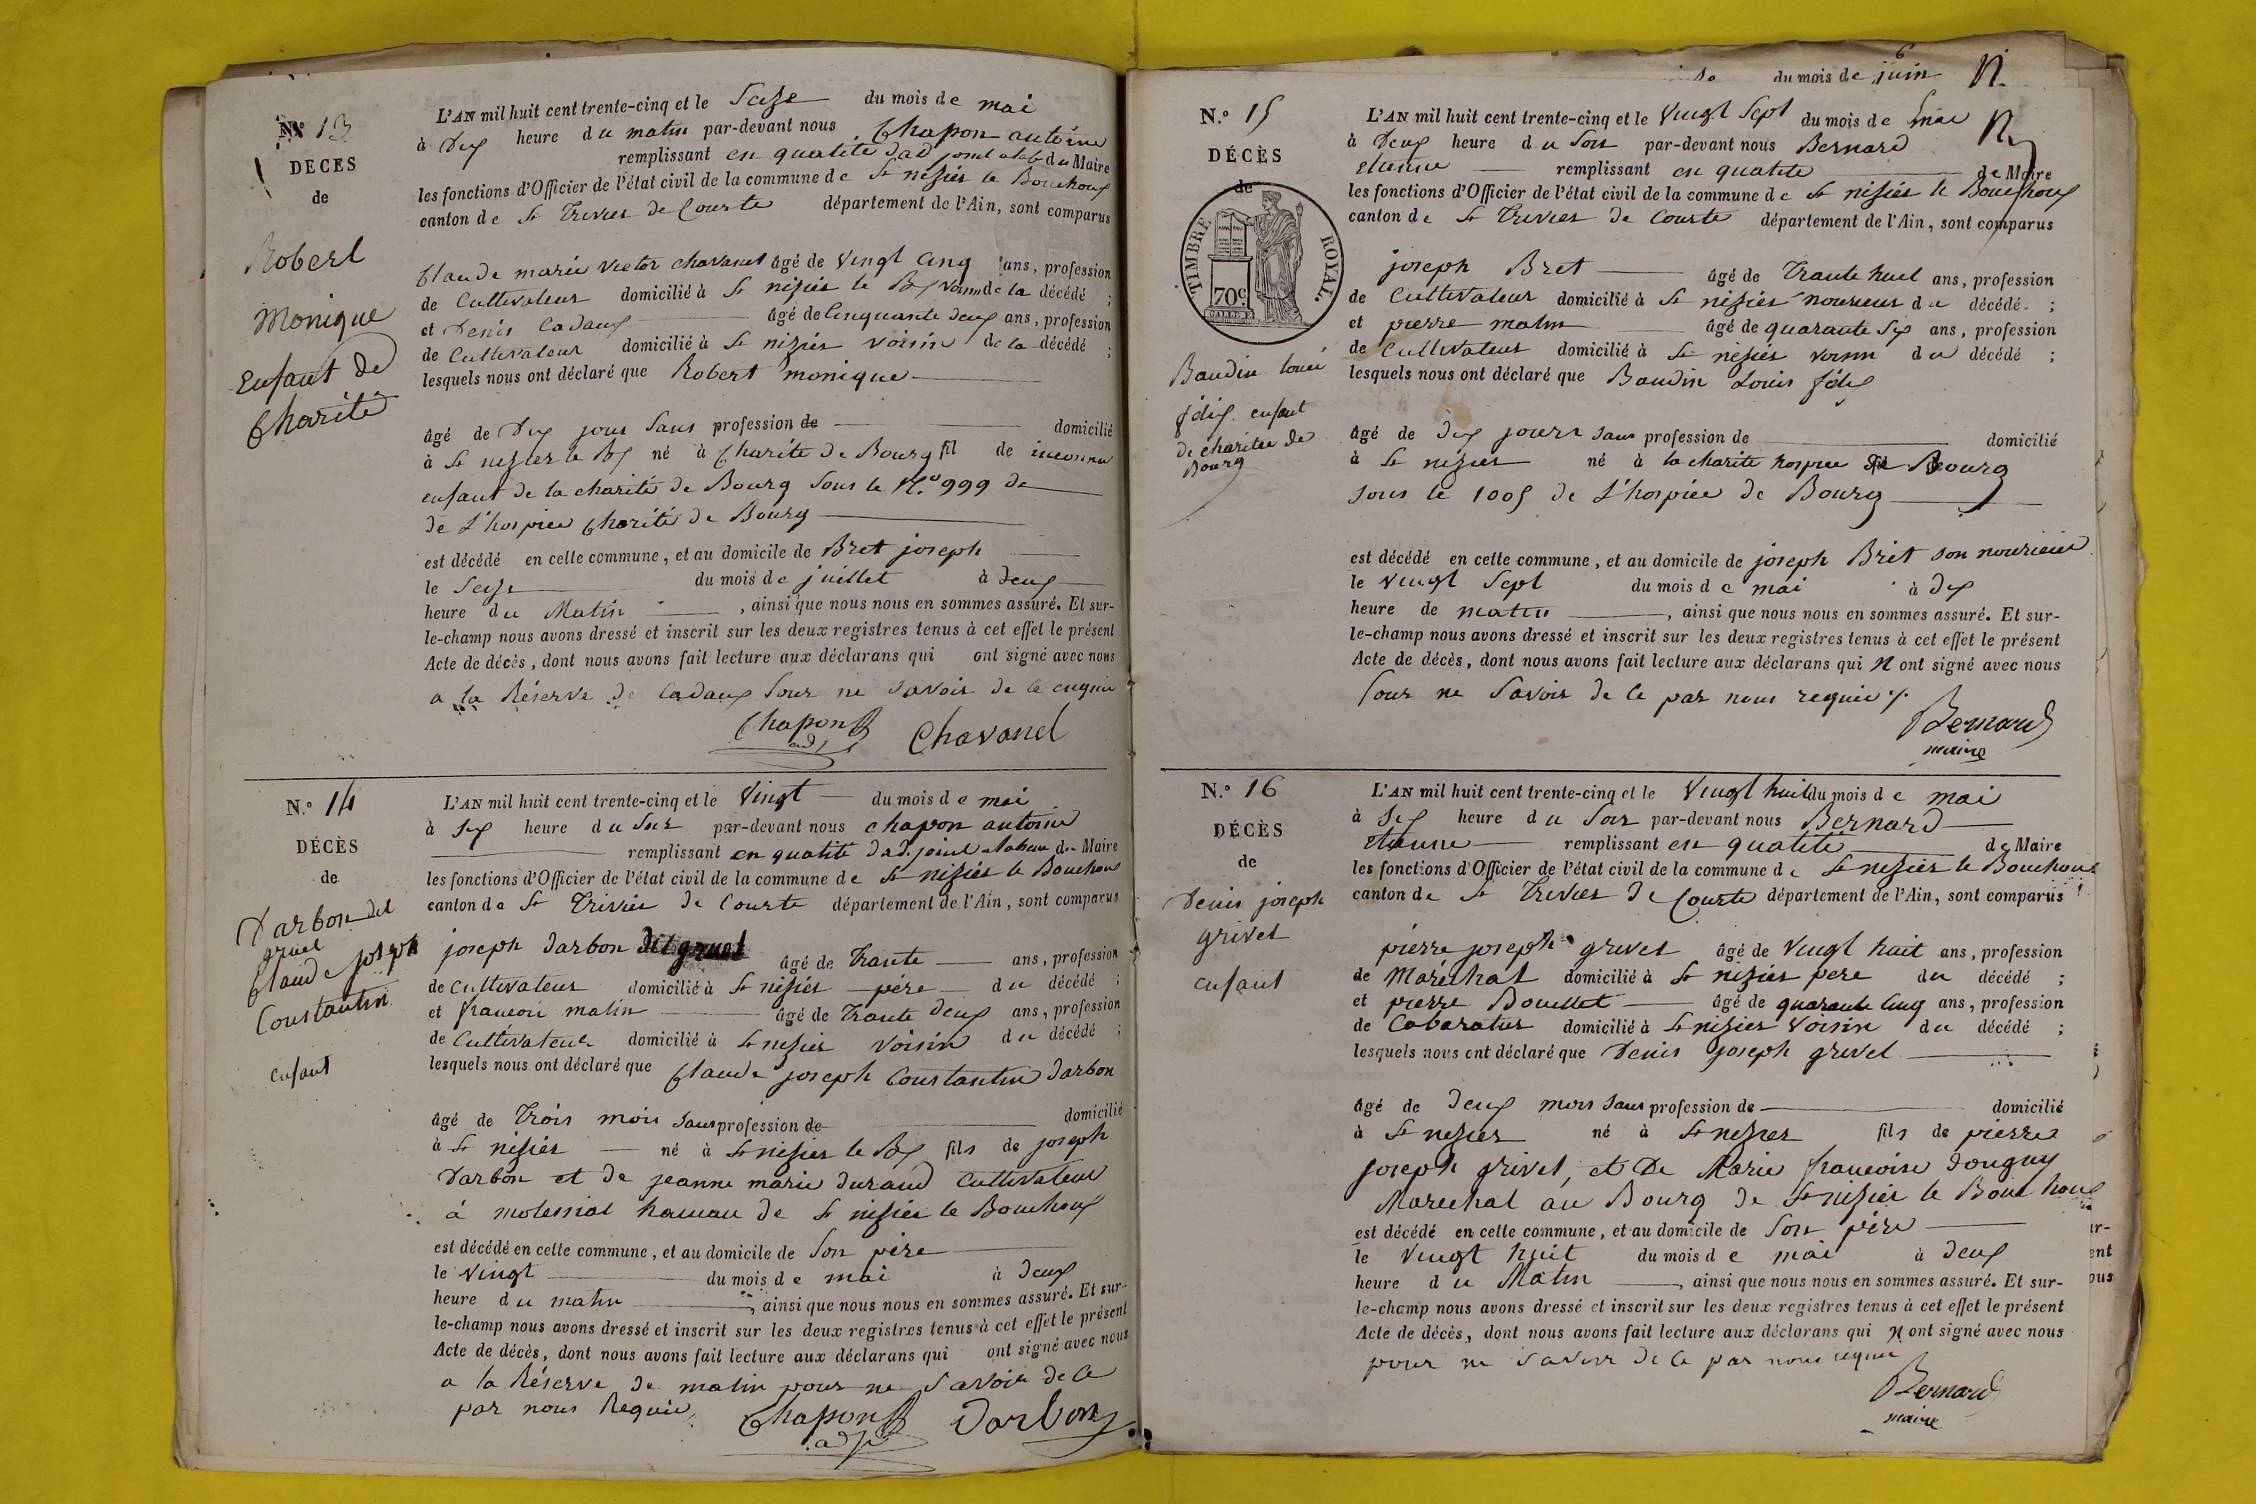 N.° 13
DÉCÈS
de
Robert
Monique
Enfant de
Charité
L'AN mil huit cent trente-cinq et le Seize du mois de mai
à Dix heure du matin par-devant nous Chapon antoine
remplissant en qualité dad joint du Maire
les fonctions d'Officier de l'état civil de la commune de St nizier le Bouchoux
canton de St Trivier de Courte département de l'Ain, sont comparus
Claude marie victor chavanel âgé de vingt cinq ans, profession
de Cultivateur domicilié à St nizier le Bx voisin de la décédé ;
et Denis Cadaux âgé de Cinquante deux ans, profession
de Cultivateur domicilié à St nizier voisin de la décédé ;
lesquels nous ont déclaré que Robert monique
âgé de Dix jour Sans profession de domicilié
à St nizier le Bx né à Charité de Bourg fil de inconnu
enfant de la charité de Bourg Sous le N.° 999 de
de L'hospice Charité de Bourg
est décédé en cette commune, et au domicile de Bret joseph
le Seize du mois de juillet à deux
heure du Matin , ainsi que nous nous en sommes assuré. Et sur-
le-champ nous avons dressé et inscrit sur les deux registres tenus à cet effet le présent
Acte de décès, dont nous avons fait lecture aux déclarans qui ont signé avec nous
a la Réserve de Cadaux Pour ne Savoir de ce enquie
Chapon Chavanel
adj
N.° 14
DÉCÈS
de
Darbon dit
gruel
Claude joseph
Constantin
enfant
L'AN mil huit cent trente-cinq et le Vingt du mois de mai
à Six heure du Soir par-devant nous chapon antoine
remplissant en qualité dad. joint du Maire
les fonctions d'Officier de l'état civil de la commune de St nizier le Bouchoux
canton de St Trivier de Courte département de l'Ain, sont comparus
joseph darbon dit gruel âgé de Trante ans, profession
de Cultivateur domicilié à St nizier père du décédé ;
et francois matin âgé de Trante deux ans, profession
de Cultivateur domicilié à St nizier voisin du décédé ;
lesquels nous ont déclaré que Claude joseph Constantin darbon
âgé de Trois mois Sans profession de domicilié
à St nizier né à St nizier le Bx fils de joseph
Darbon et de jeanne marie durand Cultivateur
à molessiat hameau de St nizier le Bouchoux
est décédé en cette commune, et au domicile de Son père
le vingt du mois de mai à deux
heure du matin , ainsi que nous nous en sommes assuré. Et sur-
le-champ nous avons dressé et inscrit sur les deux registres tenus à cet effet le présent
Acte de décès, dont nous avons fait lecture aux déclarans qui ont signé avec nous
a la Réserve de matin pour ne Savoir de ce
par nous Requis
Chapon Darbon
adj
6
du mois de juin N.
N.° 15
DÉCÈS
de
TIMBRE ROYAL.
70c.
Baudin loui
félix enfant
de charitee de
Bourg
L'AN mil huit cent trente-cinq et le Vingt Sept du mois de mai N
à Deux heure du Soir par-devant nous Bernard
etienne remplissant en qualité de Maire
les fonctions d'Officier de l'état civil de la commune de St nizier le Bouchoux
canton de St Trivier de Courte département de l'Ain, sont comparus
joseph Bret âgé de Trante huit ans, profession
de Cultivateur domicilié à St nizier nouricier du décédé ;
et pierre matin âgé de quarante Six ans, profession
de Cultivateur domicilié à St nizier voisin du décédé ;
lesquels nous ont déclaré que Baudin Louis félix
âgé de dix jours sans profession de domicilié
à St nizier né à la charité hospice de Bourg
sous le 1005 de L'hospice de Bourg
est décédé en cette commune, et au domicile de joseph Bret son nouricier
le vingt Sept du mois de mai à dix
heure de matin , ainsi que nous nous en sommes assuré. Et sur-
le-champ nous avons dressé et inscrit sur les deux registres tenus à cet effet le présent
Acte de décès, dont nous avons fait lecture aux déclarans qui N ont signé avec nous
Pour ne Savoir de ce par nous requis
Bernard
maire
N.° 16
DÉCÈS
de
Denis joseph
grivet
enfant
L'AN mil huit cent trente-cinq et le Vingt huit du mois de mai
à Six heure du Soir par-devant nous Bernard
etienne remplissant en qualité de Maire
les fonctions d'Officier de l'état civil de la commune de St nizier le Bouchoux
canton de St Trivier de Courte département de l'Ain, sont comparus
pierre joseph grivet âgé de Vingt huit ans, profession
de Maréchal domicilié à St nizier père du décédé ;
et pierre Bouillet âgé de quarante Cinq ans, profession
de Cabaratier domicilié à St nizier Voisin du décédé ;
lesquels nous ont déclaré que Denis joseph grivet
âgé de deux mois Sans profession de domicilié
à St nizier né à St nizier fils de pierre
joseph grivet, et De Marie francoise dougny
Marechal au Bourg de St nizier le Bouchoux
est décédé en cette commune, et au domicile de Son père
le vingt huit du mois de mai à deux
heure du Matin , ainsi que nous nous en sommes assuré. Et sur-
le-champ nous avons dressé et inscrit sur les deux registres tenus à cet effet le présent
Acte de décès, dont nous avons fait lecture aux déclarans qui N ont signé avec nous
pour ne Savoir de ce par nous requis
Bernard
maire